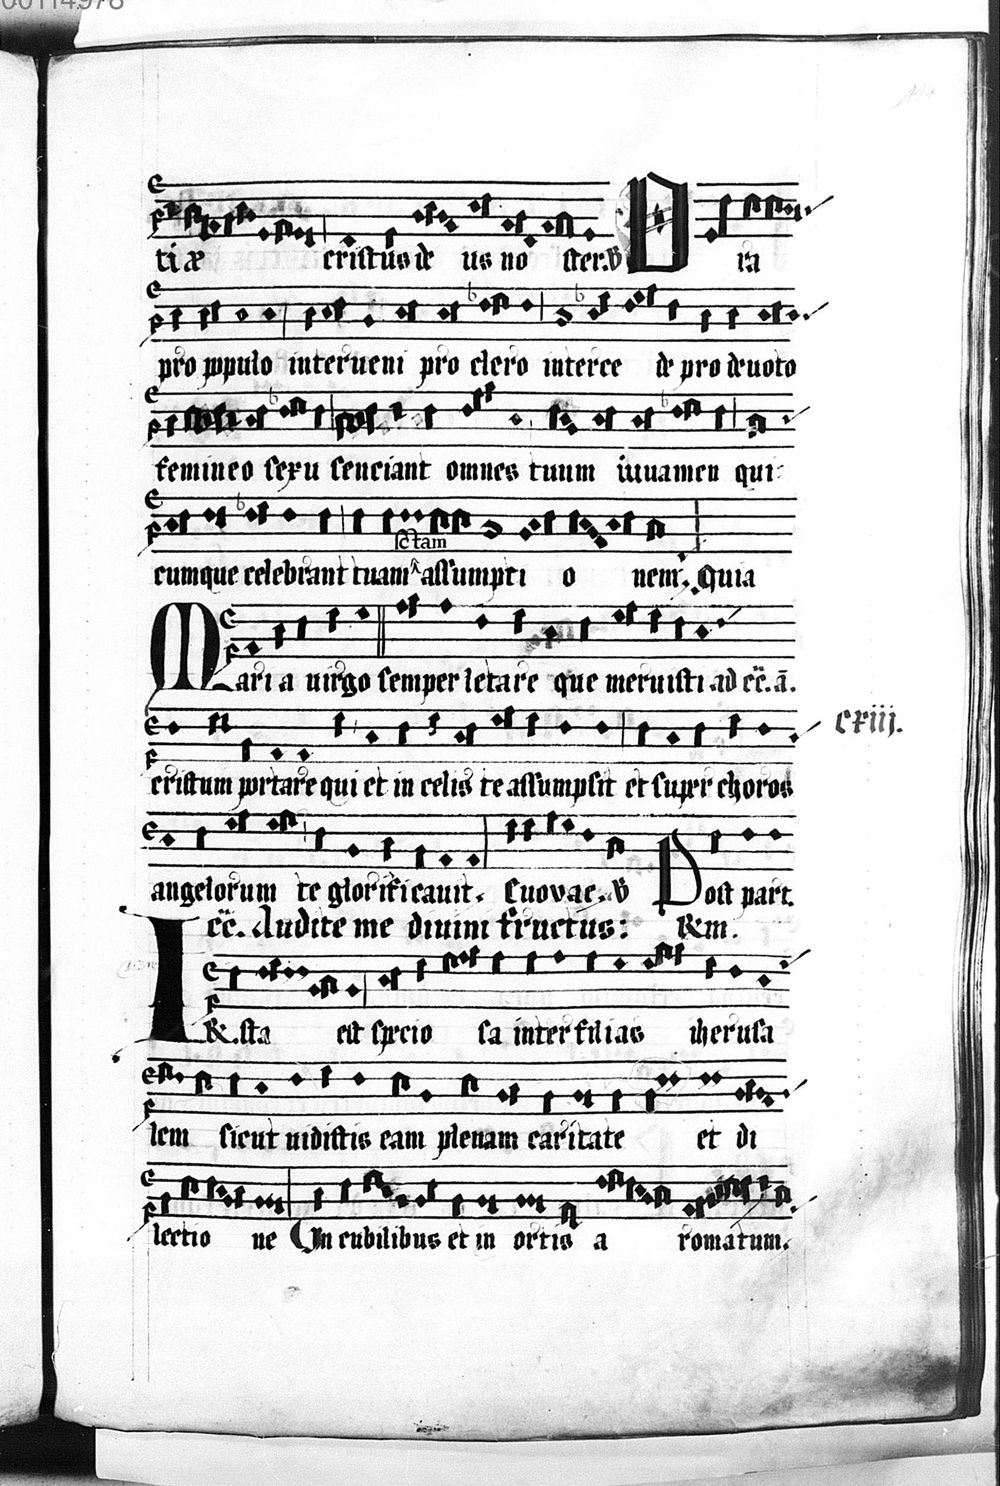 00114978
tiæ cristus de us no ster. V O ra
pro populo interueni pro clero interce de pro deuoto
femineo sexu senciant omnes tuum iuuamen qui
sctam
cumque celebrant tuam assumpti o nem. Quia
Maria uirgo semper letare que meruisti ad ec̄. ā.
cristum portare qui et in celis te assumpsit et super choros
cxiij.
angelorum te glorificauit. Euovae. V Post part.
ec̄. Audite me diuini fructus: Rm.
Ista est specio sa inter filias iherusa
lem sicut uidistis eam plenam caritate et di
lectio ne In cubilibus et in ortis a romatum.